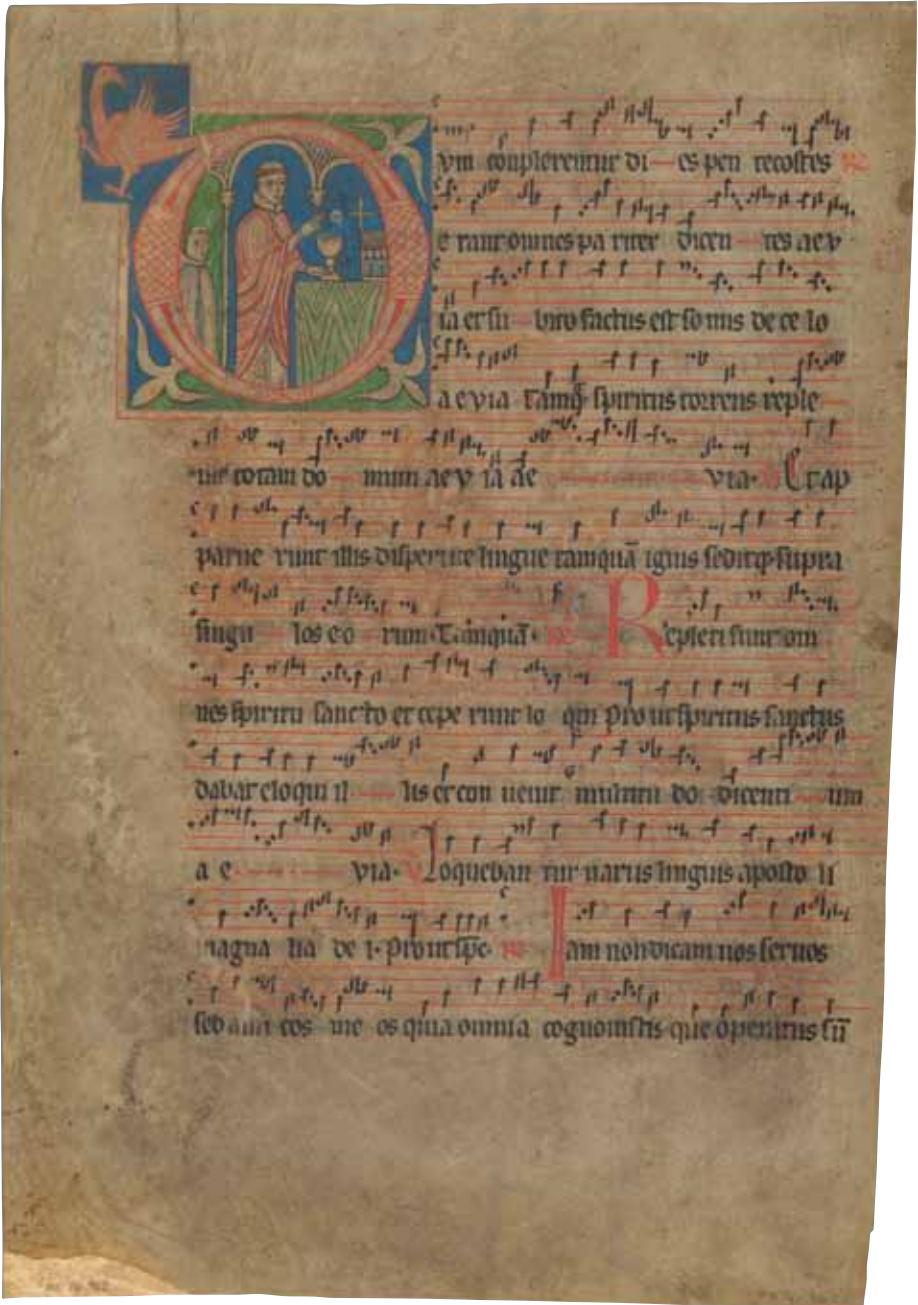 vm conplerentur di es pen tecostes
e rant omnes pa riter dicen tes aev
ia et su bito factus est so nus de ce lo
aevia Tamq̄ spiritus torrens reple
uit totam do mum aev ia ae via. Et ap
parue runt illis dispertite lingue tamquā ignis seditq; supra
singu los eo rum. Tamquā. Repleti sunt om
nes spiritu sancto et cepe runt lo qui Prout spiritus sanctus
dabat eloqui il lis et con uenit multitu do dicenti um
a e via. Loqueban tur uariis linguis aposto li
magna lia de i. Prout spc̄ Iam non dicam uos seruos
sed ami cos me os quia omnia cognouistis que operatus sū